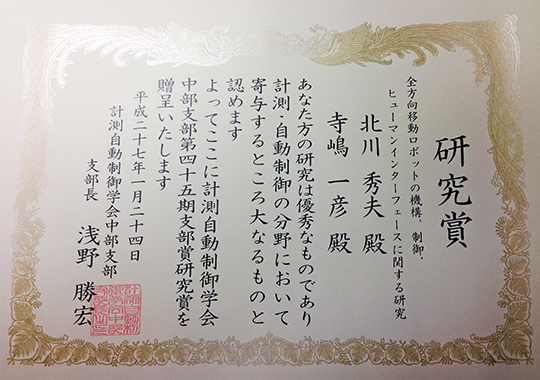 研究賞
全方向移動ロボットの機構，制御，
ヒューマンインターフェースに関する研究
北川 秀夫 殿
寺嶋 一彦 殿
あなた方の研究は優秀なものであり
計測・自動制御の分野において
寄与するところ大なるものと
認めます
よってここに計測自動制御学会
中部支部第四十五期支部賞研究賞を
贈呈いたします
平成二十七年一月二十四日
計測自動制御学会中部支部
支部長 浅野 勝宏